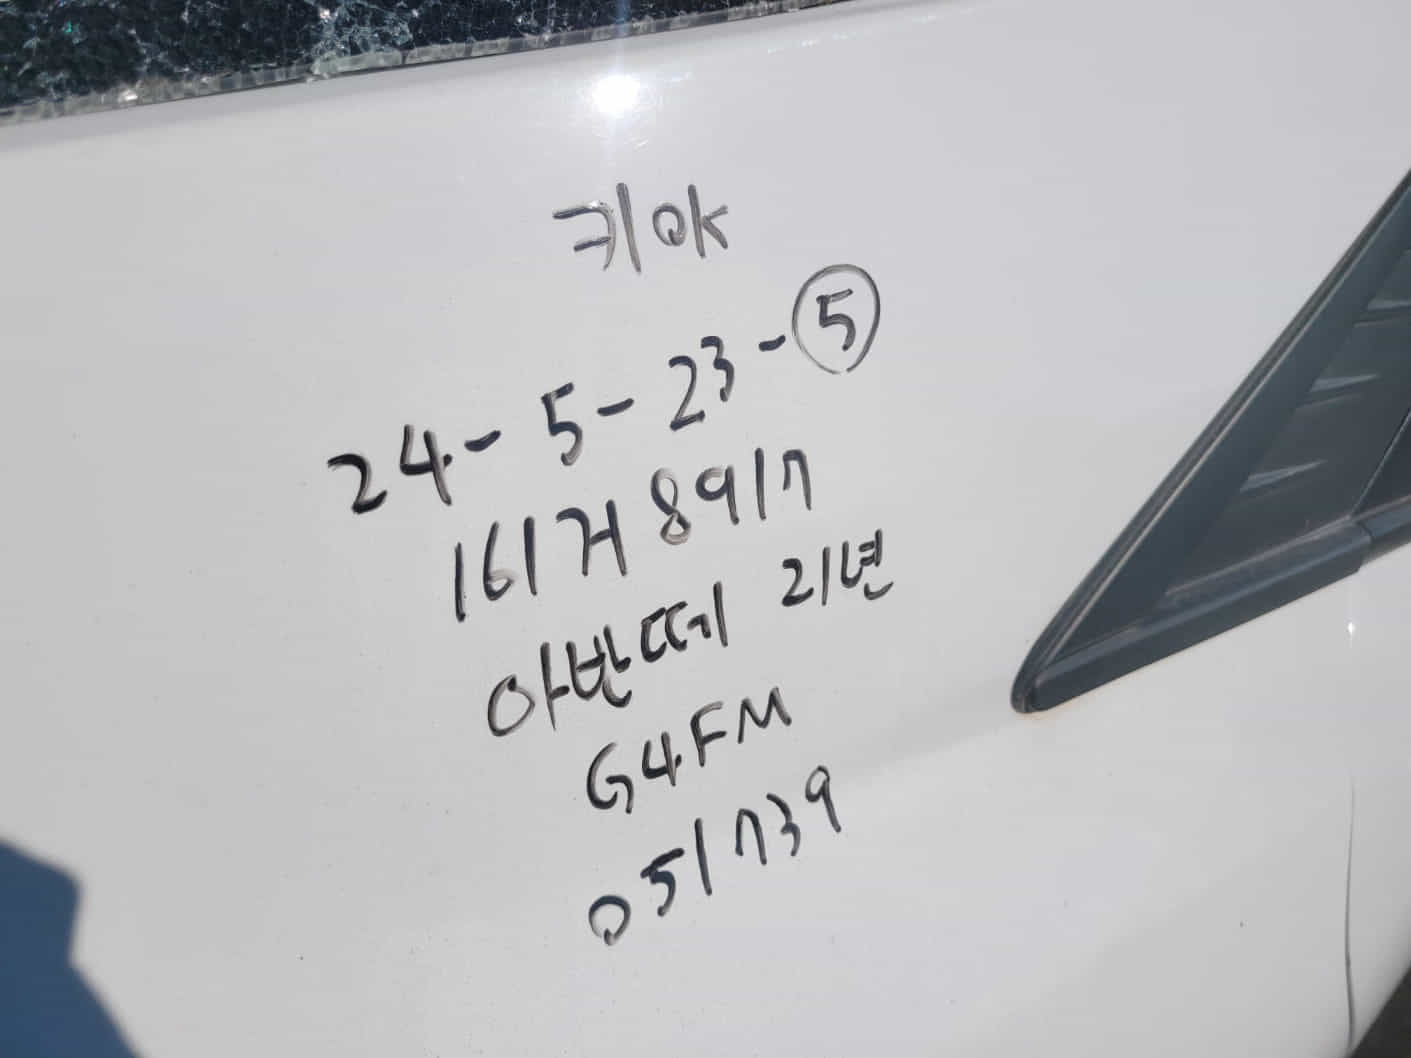 키 OK
24-5-23-⑤
161거 8917
아반떼 21년
G4FM
051739